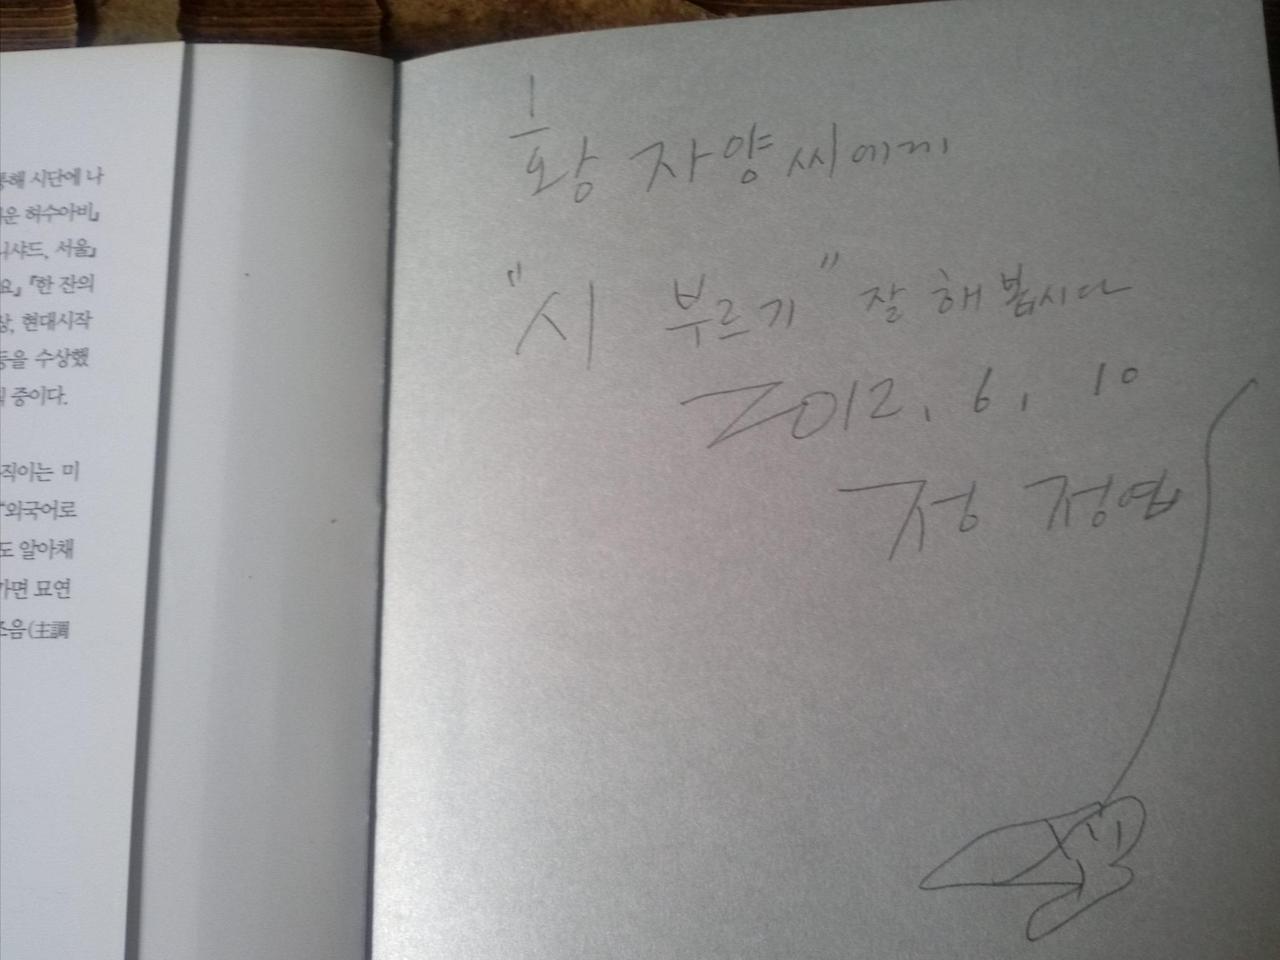 통해 시단에 나
운 허수아비』
니샤드, 서울』
요』 『한 잔의
상, 현대시작
등을 수상했
중이다.
직이는 미
“외국어로
도 알아채
가면 묘연
조음(主調
황 자양씨에게
"시 부르기" 잘 해 봅시다
2012. 6. 10
정 정엽